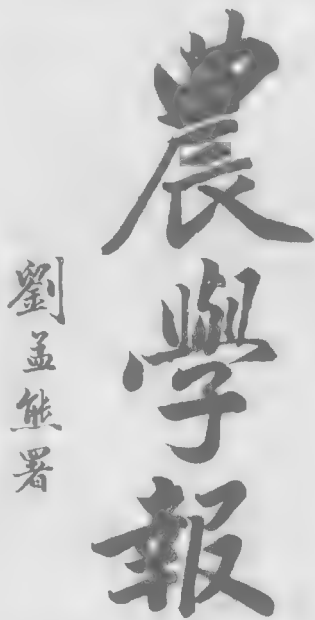 農學報
劉孟熊署